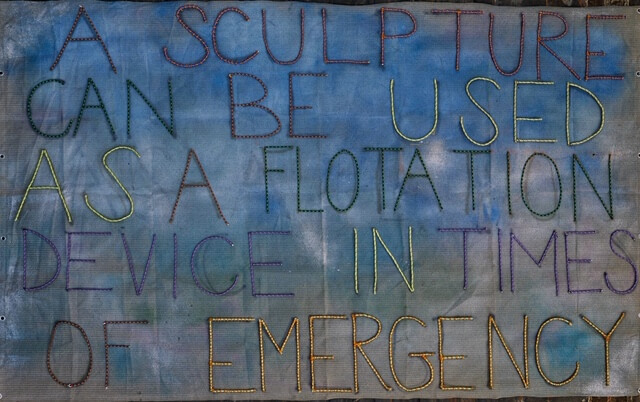 A SCULPTURE
CAN BE USED
AS A FLOTATION
DEVICE IN TIMES
OF EMERGENCY